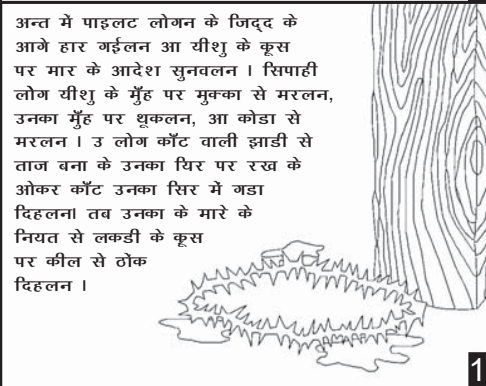 अन्त में पाइलट लोगन के जिद्द के
आगे हार गईलन आ यीशु के क्रूस
पर मार के आदेश सुनवलन । सिपाही
लोग यीशु के मुँह पर मुक्का से मरलन,
उनका मुँह पर थूकलन, आ कोडा से
मरलन । उ लोग काँट वाली झाडी से
ताज बना के उनका यिर पर रख के
ओकर काँट उनका सिर में गडा
दिहलन। तब उनका के मारे के
नियत से लकडी के क्रूस
पर कील से ठोंक
दिहलन ।
1